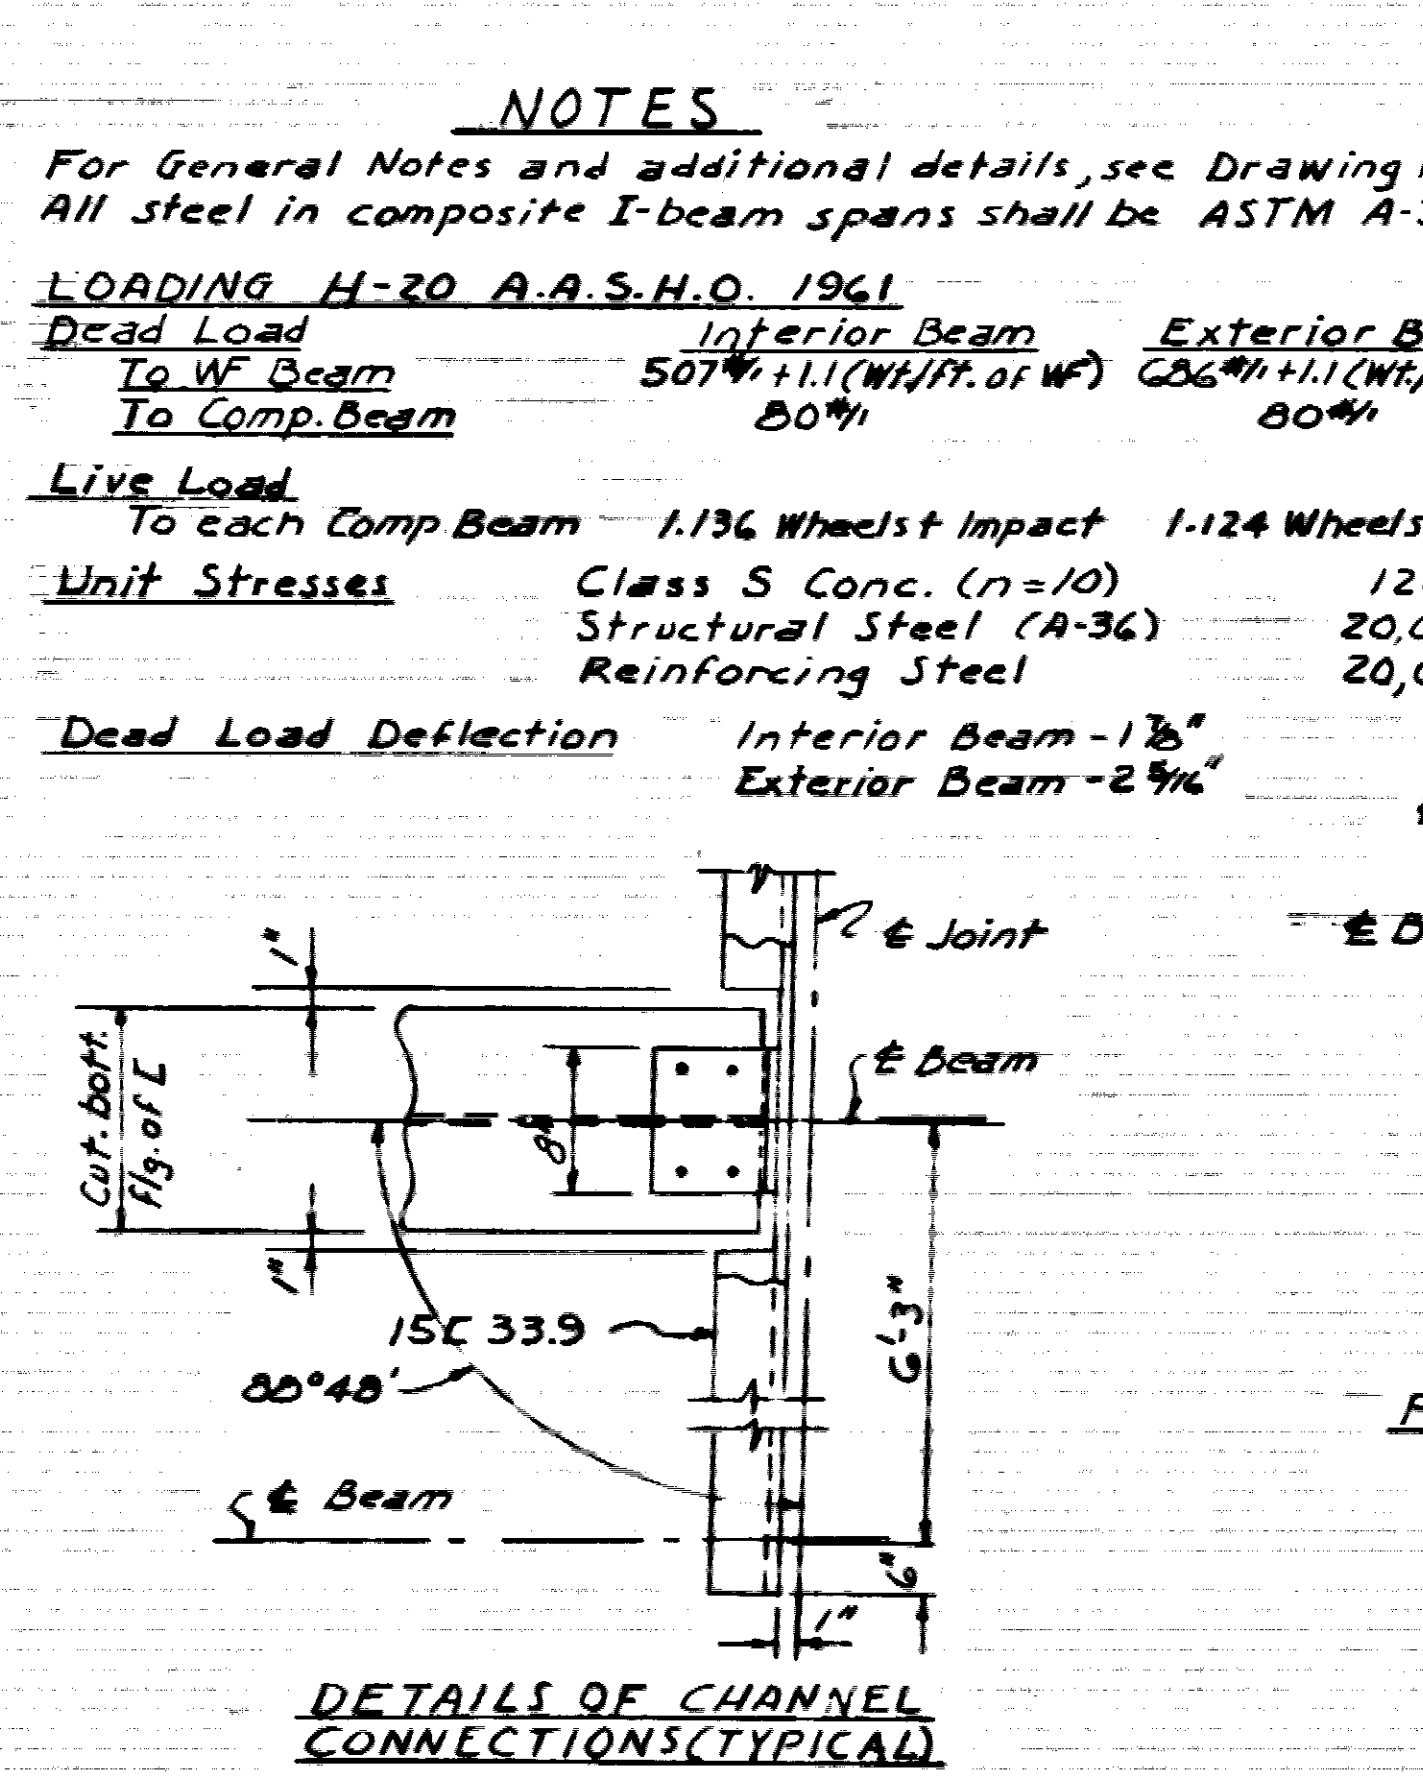 NOTES
For General Notes and additional details, see Drawing
All steel in composite I-beam spans shall be ASTM A-3
LOADING H-20 A.A.S.H.O. 1961
Dead Load Interior Beam Exterior B
To WF Beam 507#/' +1.1(Wt./ft. of WF) 686#/' +1.1(Wt./
To Comp. Beam 80#/' 80#/'
Live Load
To each Comp Beam 1.136 Wheels + Impact 1.124 Wheels
Unit Stresses Class S Conc. (n=10) 12
Structural Steel (A-36) 20,0
Reinforcing Steel 20,0
Dead Load Deflection Interior Beam - 1 7/8"
Exterior Beam - 2 5/16"
1"
℄ Joint
℄ B
℄ Beam
Cut. bott.
Flg. of [
8"
1"
15[ 33.9
6'-3"
88°48'
F
℄ Beam
6"
1"
DETAILS OF CHANNEL
CONNECTIONS (TYPICAL)